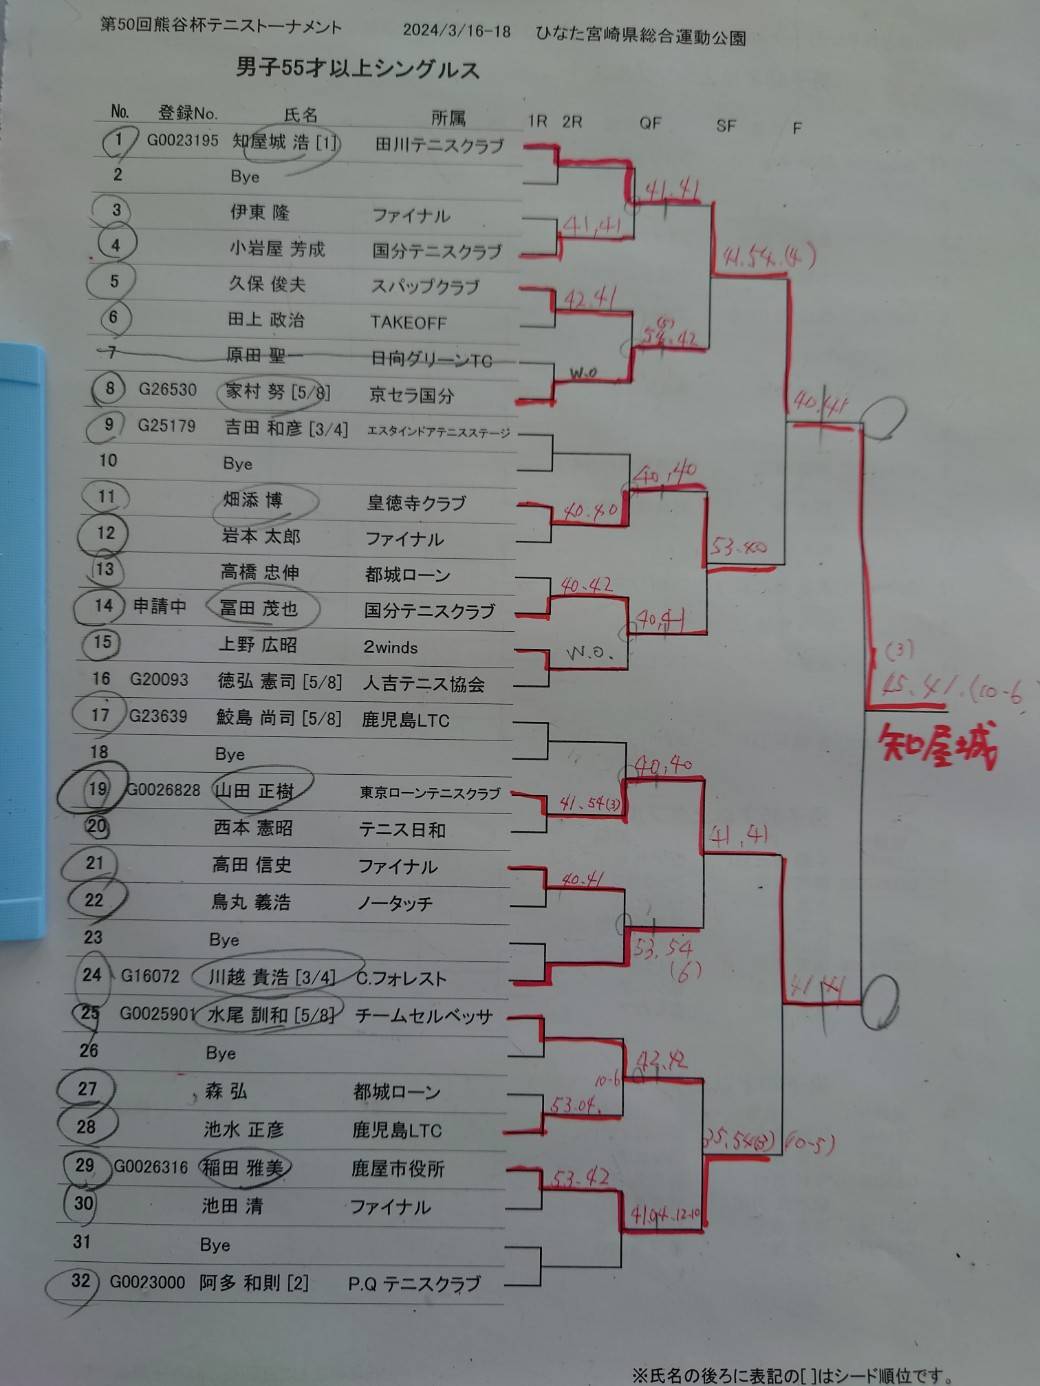 第50回熊谷杯テニストーナメント 2024/3/16-18 ひなた宮崎県総合運動公園
男子55才以上シングルス
No. 登録No. 氏名 所属 1R 2R QF SF F
1 G0023195 知屋城 浩 [1] 田川テニスクラブ
2 Bye
41.41
3 伊東 隆 ファイナル
41,41
4 小岩屋 芳成 国分テニスクラブ
41.54.(4)
5 久保 俊夫 スパップクラブ
42.41
6 田上 政治 TAKEOFF
54(5).42
7 原田 聖一 日向グリーンTC
W.O
8 G26530 家村 努 [5/8] 京セラ国分
40.41
9 G25179 吉田 和彦 [3/4] エスタインドアテニスステージ
10 Bye
40,40
11 畑添 博 皇徳寺クラブ
40.40
12 岩本 太郎 ファイナル
53.40
13 高橋 忠伸 都城ローン
40.42
14 申請中 冨田 茂也 国分テニスクラブ
40,41
15 上野 広昭 2winds
W.O.
16 G20093 徳弘 憲司 [5/8] 人吉テニス協会
(3)
45.41.(10-6
17 G23639 鮫島 尚司 [5/8] 鹿児島LTC
知屋城
18 Bye
40,40
19 G0026828 山田 正樹 東京ローンテニスクラブ
41.54(3)
20 西本 憲昭 テニス日和
41,41
21 高田 信史 ファイナル
40.41
22 鳥丸 義浩 ノータッチ
23 Bye
53.54
(6)
24 G16072 川越 貴浩 [3/4] C.フォレスト
41.41
25 G0025901 水尾 訓和 [5/8] チームセルベッサ
26 Bye
42.42
10-6
27 森 弘 都城ローン
53.04.
28 池水 正彦 鹿児島LTC
35.54(3) (10-5)
29 G0026316 稲田 雅美 鹿屋市役所
53.42
30 池田 清 ファイナル
41.04.12-10
31 Bye
32 G0023000 阿多 和則 [2] P.Q テニスクラブ
※氏名の後ろに表記の[ ]はシード順位です。